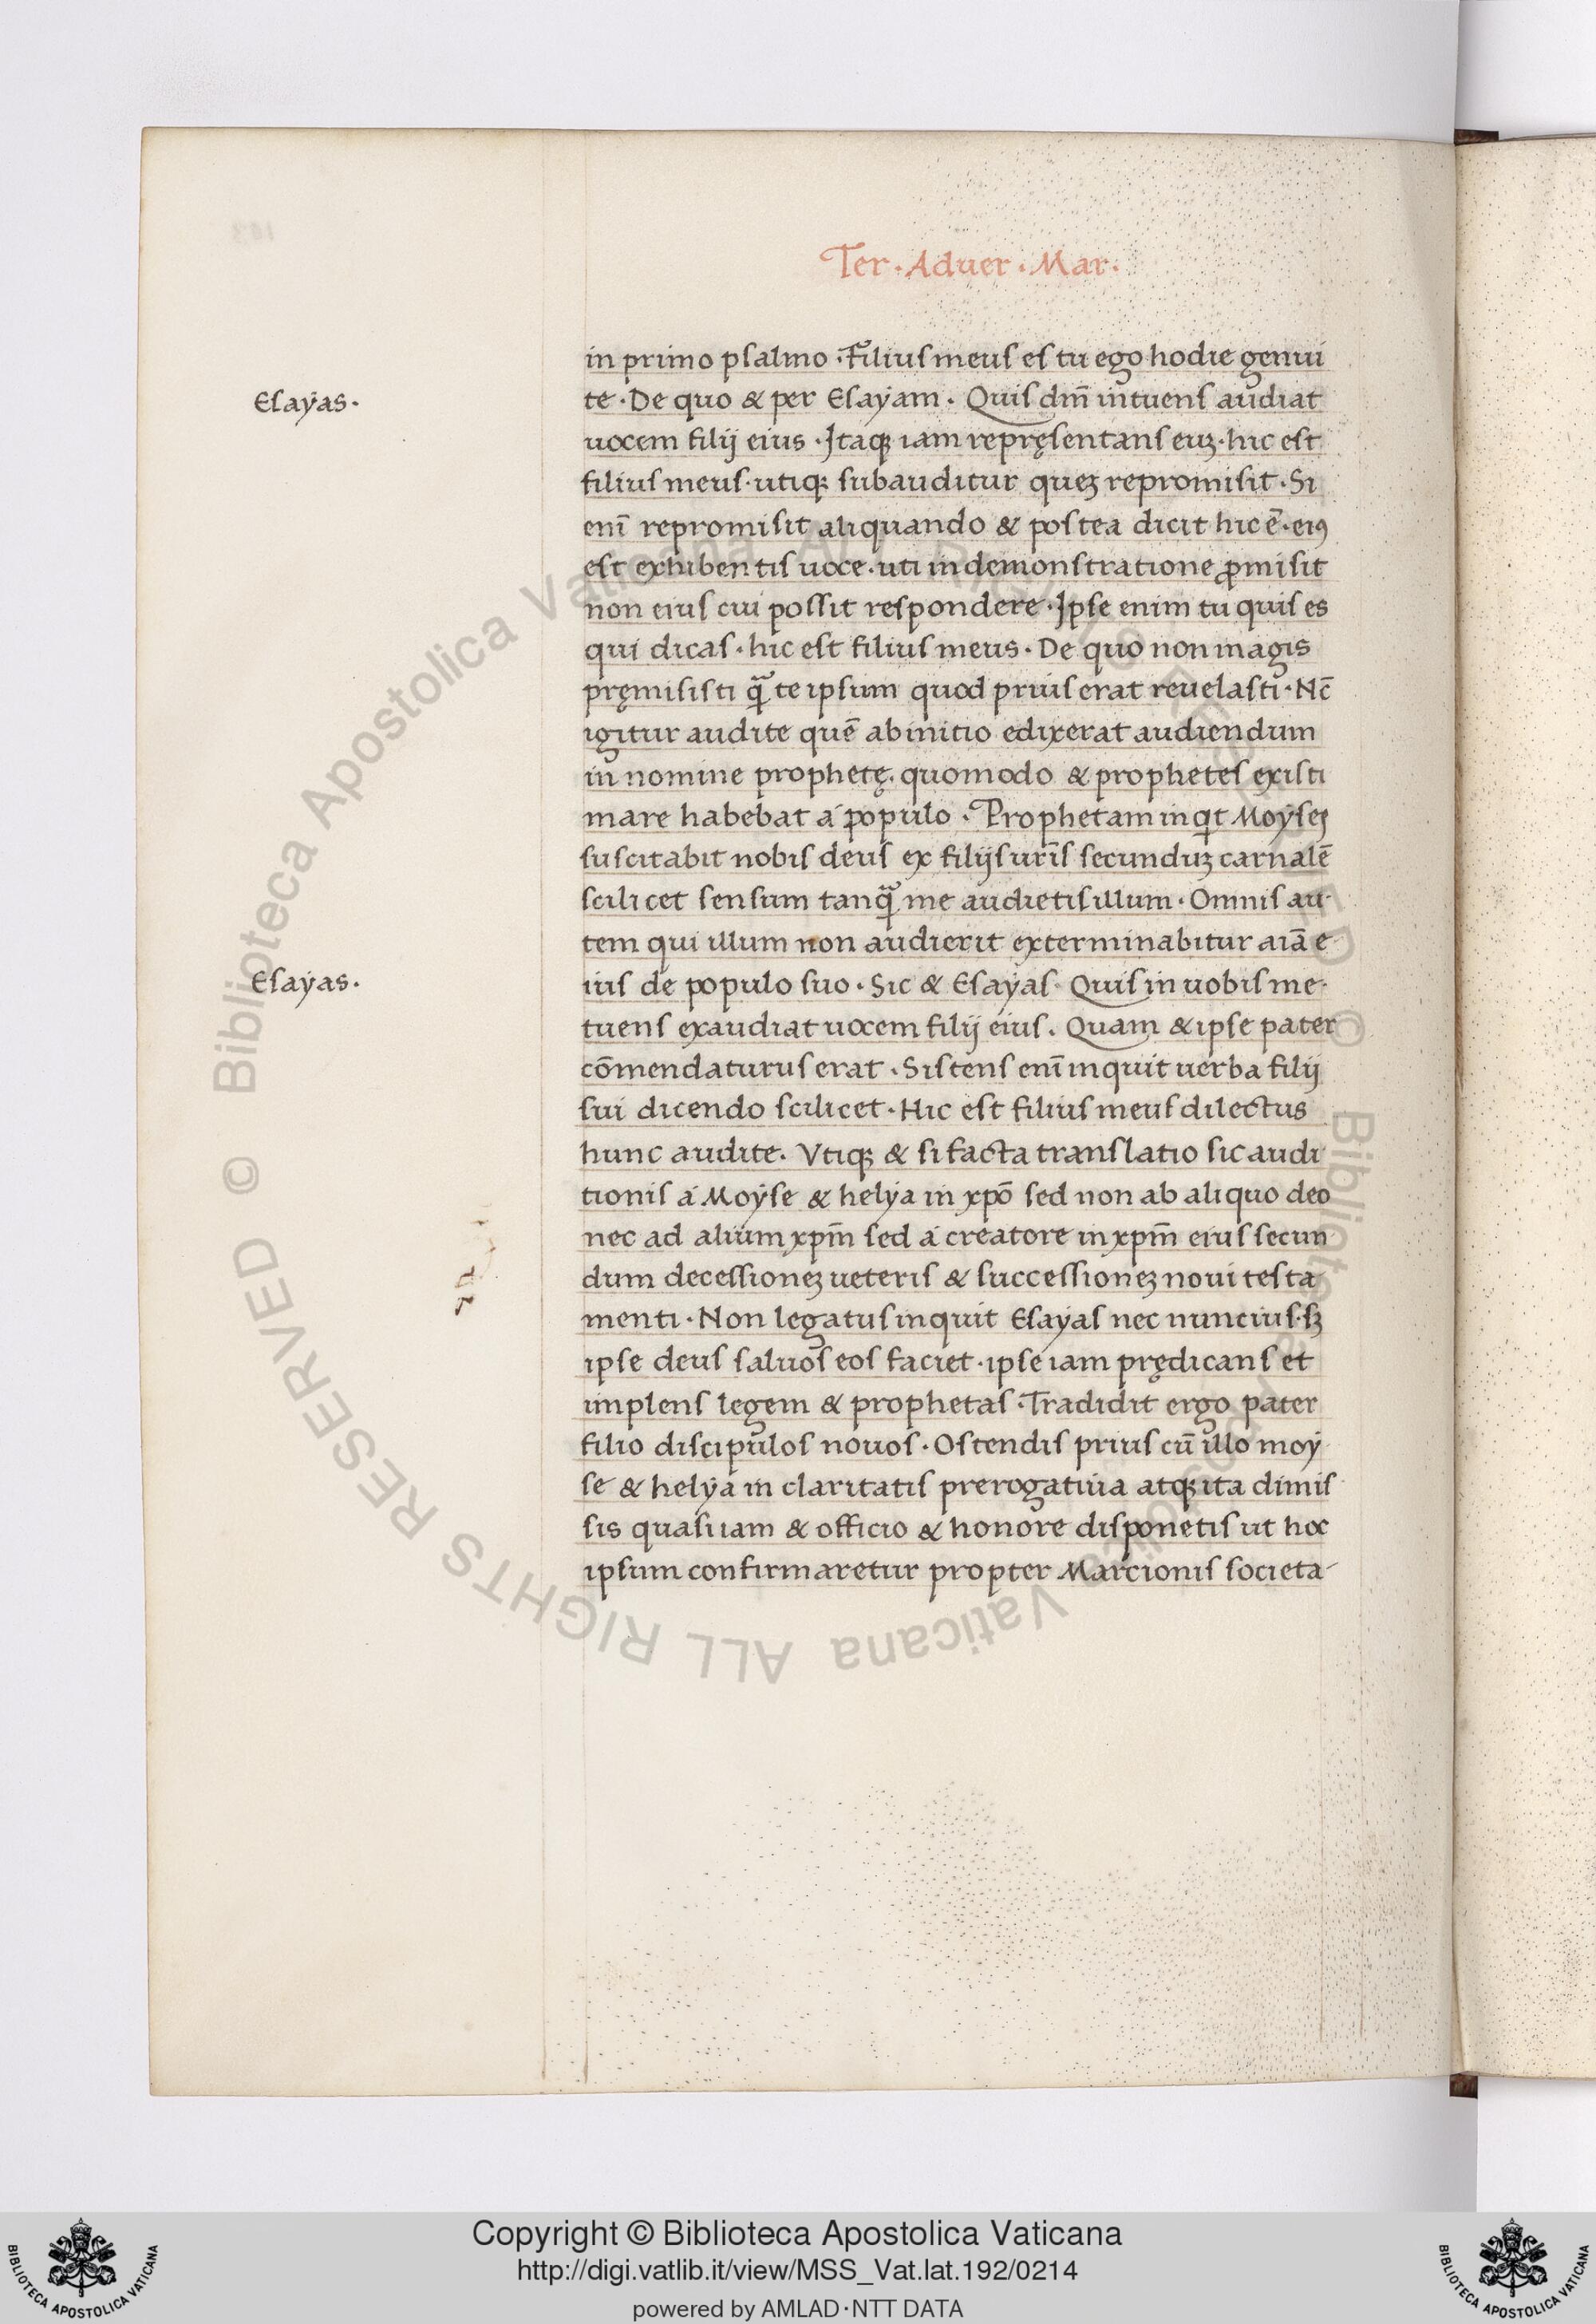 Ter. Aduer. Mar.
in primo psalmo. Filius meus es tu ego hodie genui
Esayas.
te. De quo & per Esayam. Quis dm̄ intuens audiat
uocem filij eius. Itaqꝫ iam repręsentans euꝫ. hic est
filius meus. utiqꝫ subauditur queꝫ repromisit. Si
eni̅ repromisit aliquando & postea dicit hic e̅. eiꝰ
est exhibentis uoce. uti in demonstratione ꝓmisit
non eius cui possit respondere. Ipse enim tu quis es
qui dicas. hic est filius meus. De quo non magis
pręmisisti qᷓ te ipsum quod prius erat reuelasti. Nc̅
igitur audite que̅ ab initio edixerat audiendum
in nomine prophetę. quomodo & prophetes existi
mare habebat á populo. Prophetam inqt Moÿses
suscitabit nobis deus ex filijs ur̅is secunduꝫ carnale̅
scilicet sensum tanqᷓ me audietis illum. Omnis au-
tem qui illum non audierit exterminabitur aia̅ e-
Esayas.
ius de populo suo. Sic & Esaÿas. Quis in uobis me-
tuens exaudiat uocem filij eius. Quam & ipse pater
co̅mendaturus erat. Sistens eni̅ inquit uerba filij
sui dicendo scilicet. Hic est filius meus dilectus
hunc audite. Vtiqꝫ & si facta translatio sic audi
tionis á Moÿse & helÿa in xpo̅ sed non ab aliquo deo
nec ad alium xpm̅ sed á creatore in xpm̅ eius secun
dum decessioneꝫ ueteris & successioneꝫ noui testa
menti. Non legatus inquit Esaÿas nec nuncius. sꝫ
ipse deus saluos eos faciet. ipse iam prędicans et
implens legem & prophetas. Tradidit ergo pater
filio discipulos nouos. Ostendis prius cu̅ illo moÿ
se & helÿa in claritatis prerogatiua atqꝫ ita dimis
sis quasi iam & officio & honore disponetis ut hoc
ipsum confirmaretur propter Marcionis societa-
© Biblioteca Apostolica Vaticana ALL RIGHTS RESERVED
© Biblioteca Apostolica Vaticana ALL RIGHTS RESERVED
Copyright © Biblioteca Apostolica Vaticana
http://digi.vatlib.it/view/MSS_Vat.lat.192/0214
powered by AMLAD·NTT DATA
BIBLIOTECA APOSTOLICA VATICANA
BIBLIOTECA APOSTOLICA VATICANA